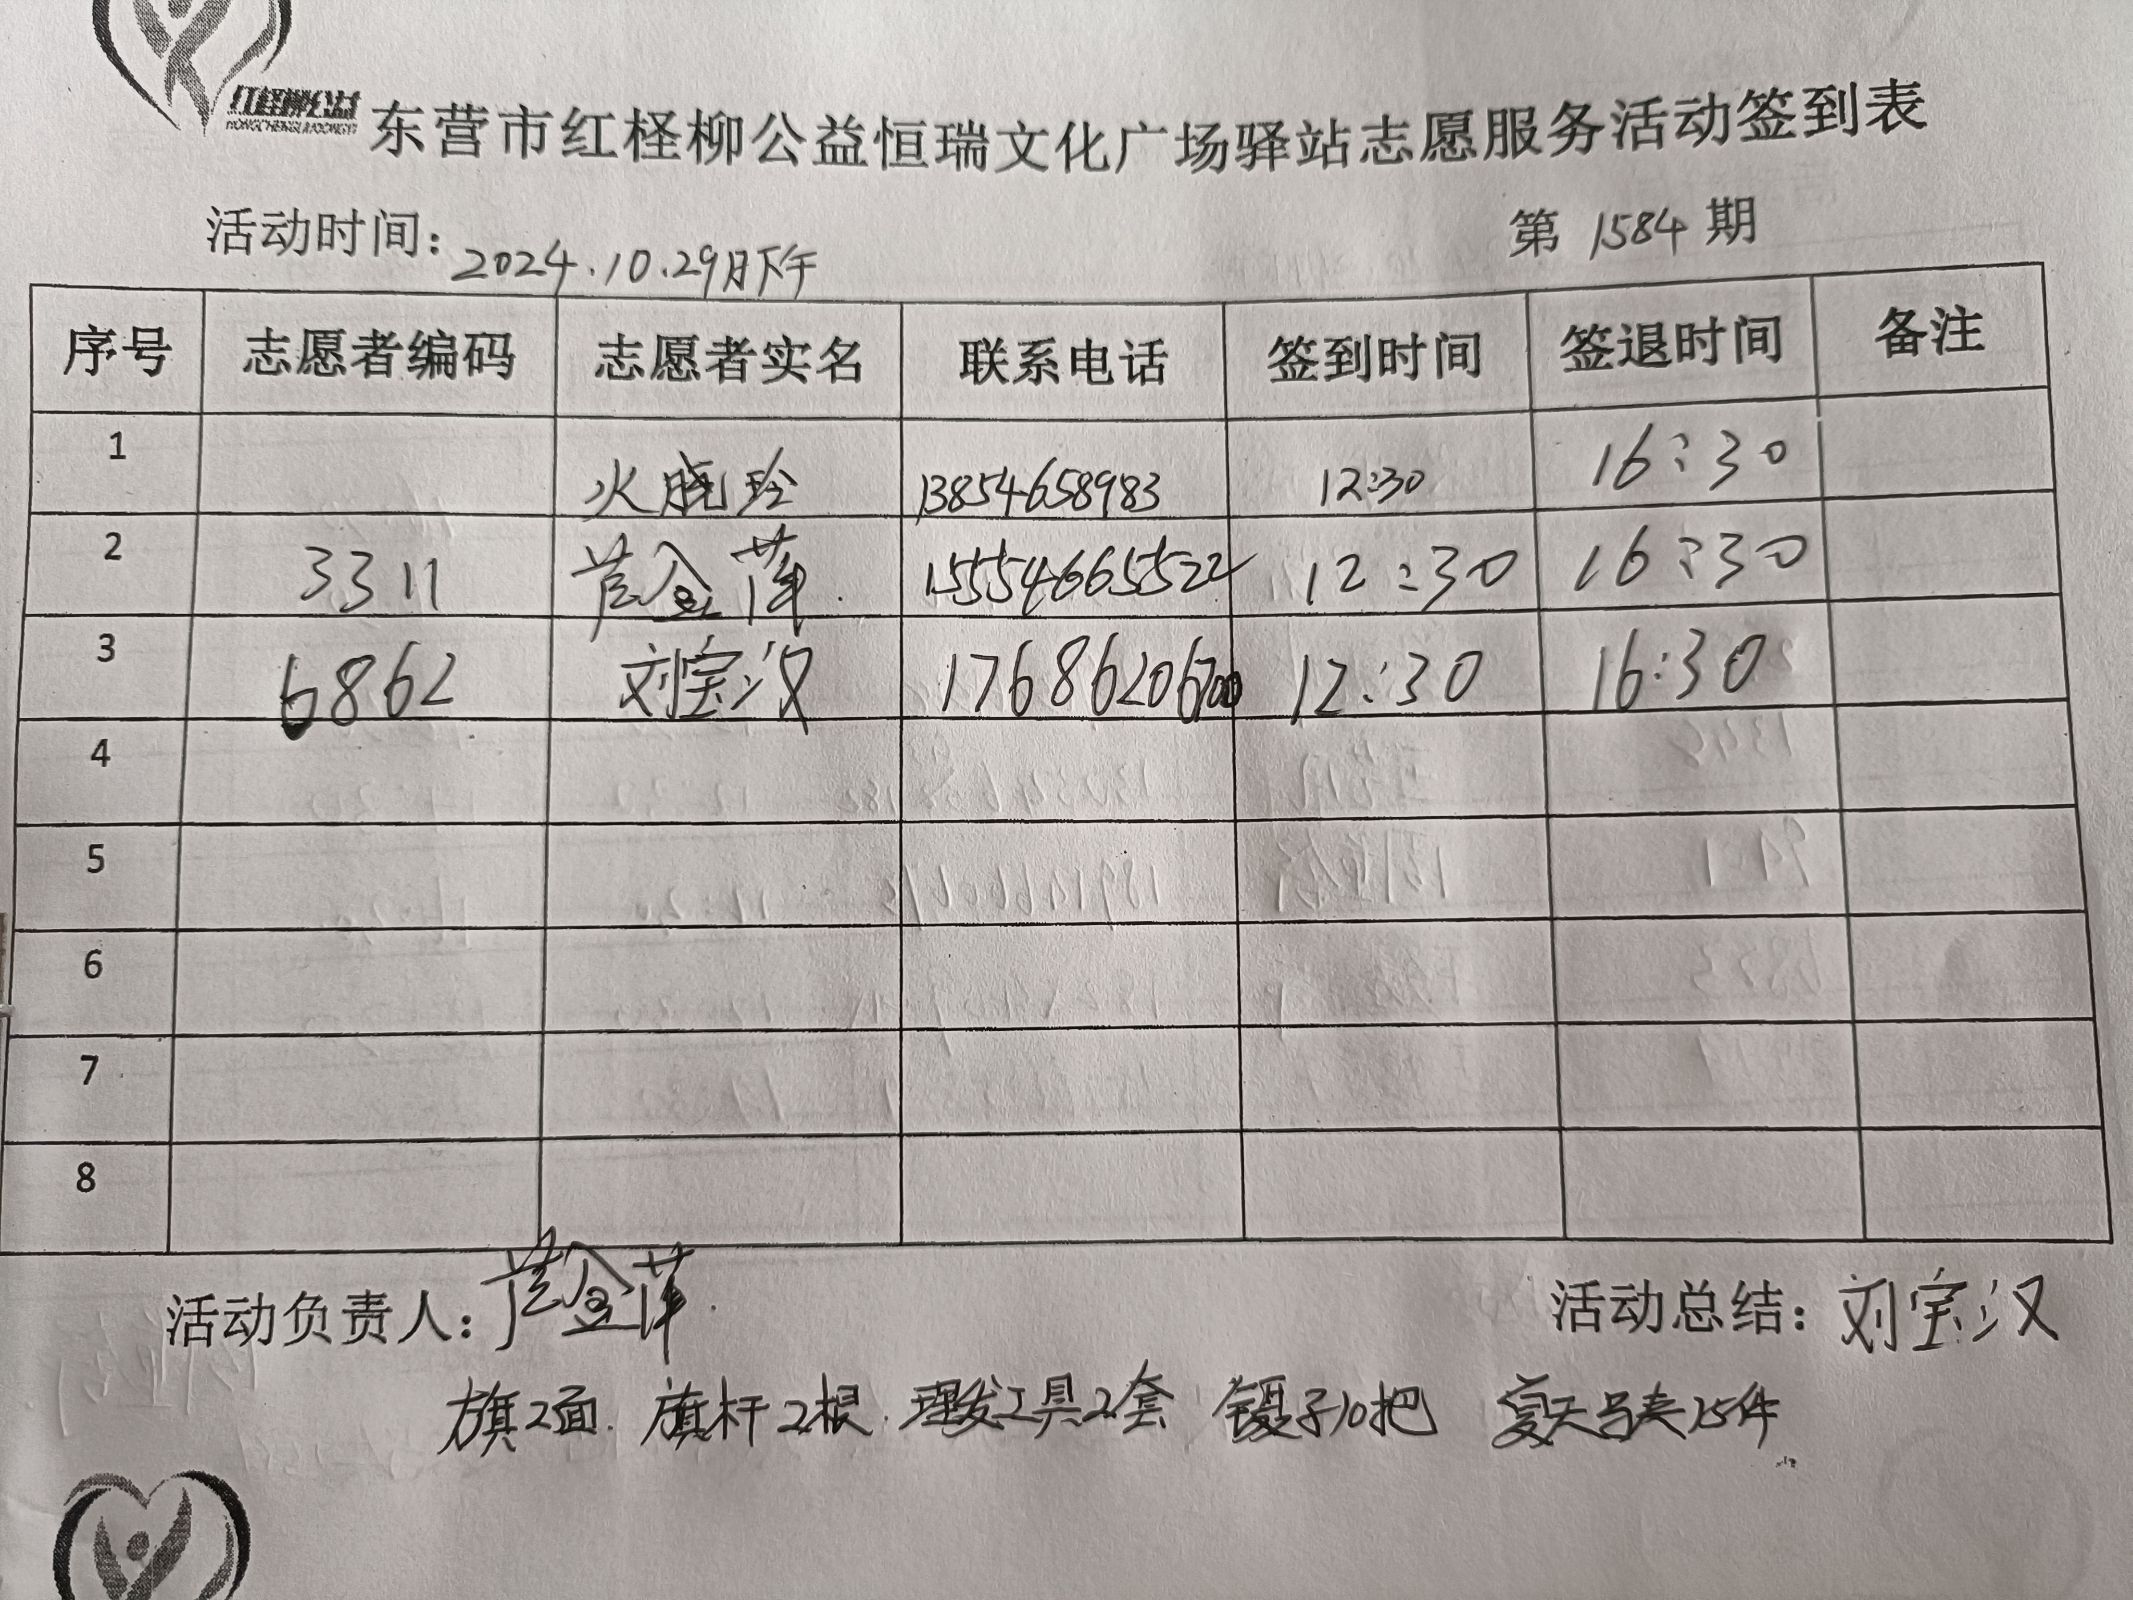 红柽柳公益
HONGCHENGLIUGONGYI
东营市红柽柳公益恒瑞文化广场驿站志愿服务活动签到表
活动时间：2024.10.29日下午 第 1584 期
序号 志愿者编码 志愿者实名 联系电话 签到时间 签退时间 备注
1 火晓玲 13854658983 12:30 16:30
2 3311 芦金萍 15554665522 12:30 16:30
3 6862 刘宝汉 17686206700 12:30 16:30
4
5
6
7
8
活动负责人：芦金萍 活动总结：刘宝汉
旗2面 旗杆2根 理发工具2套 镊子10把 夏天马夹15件